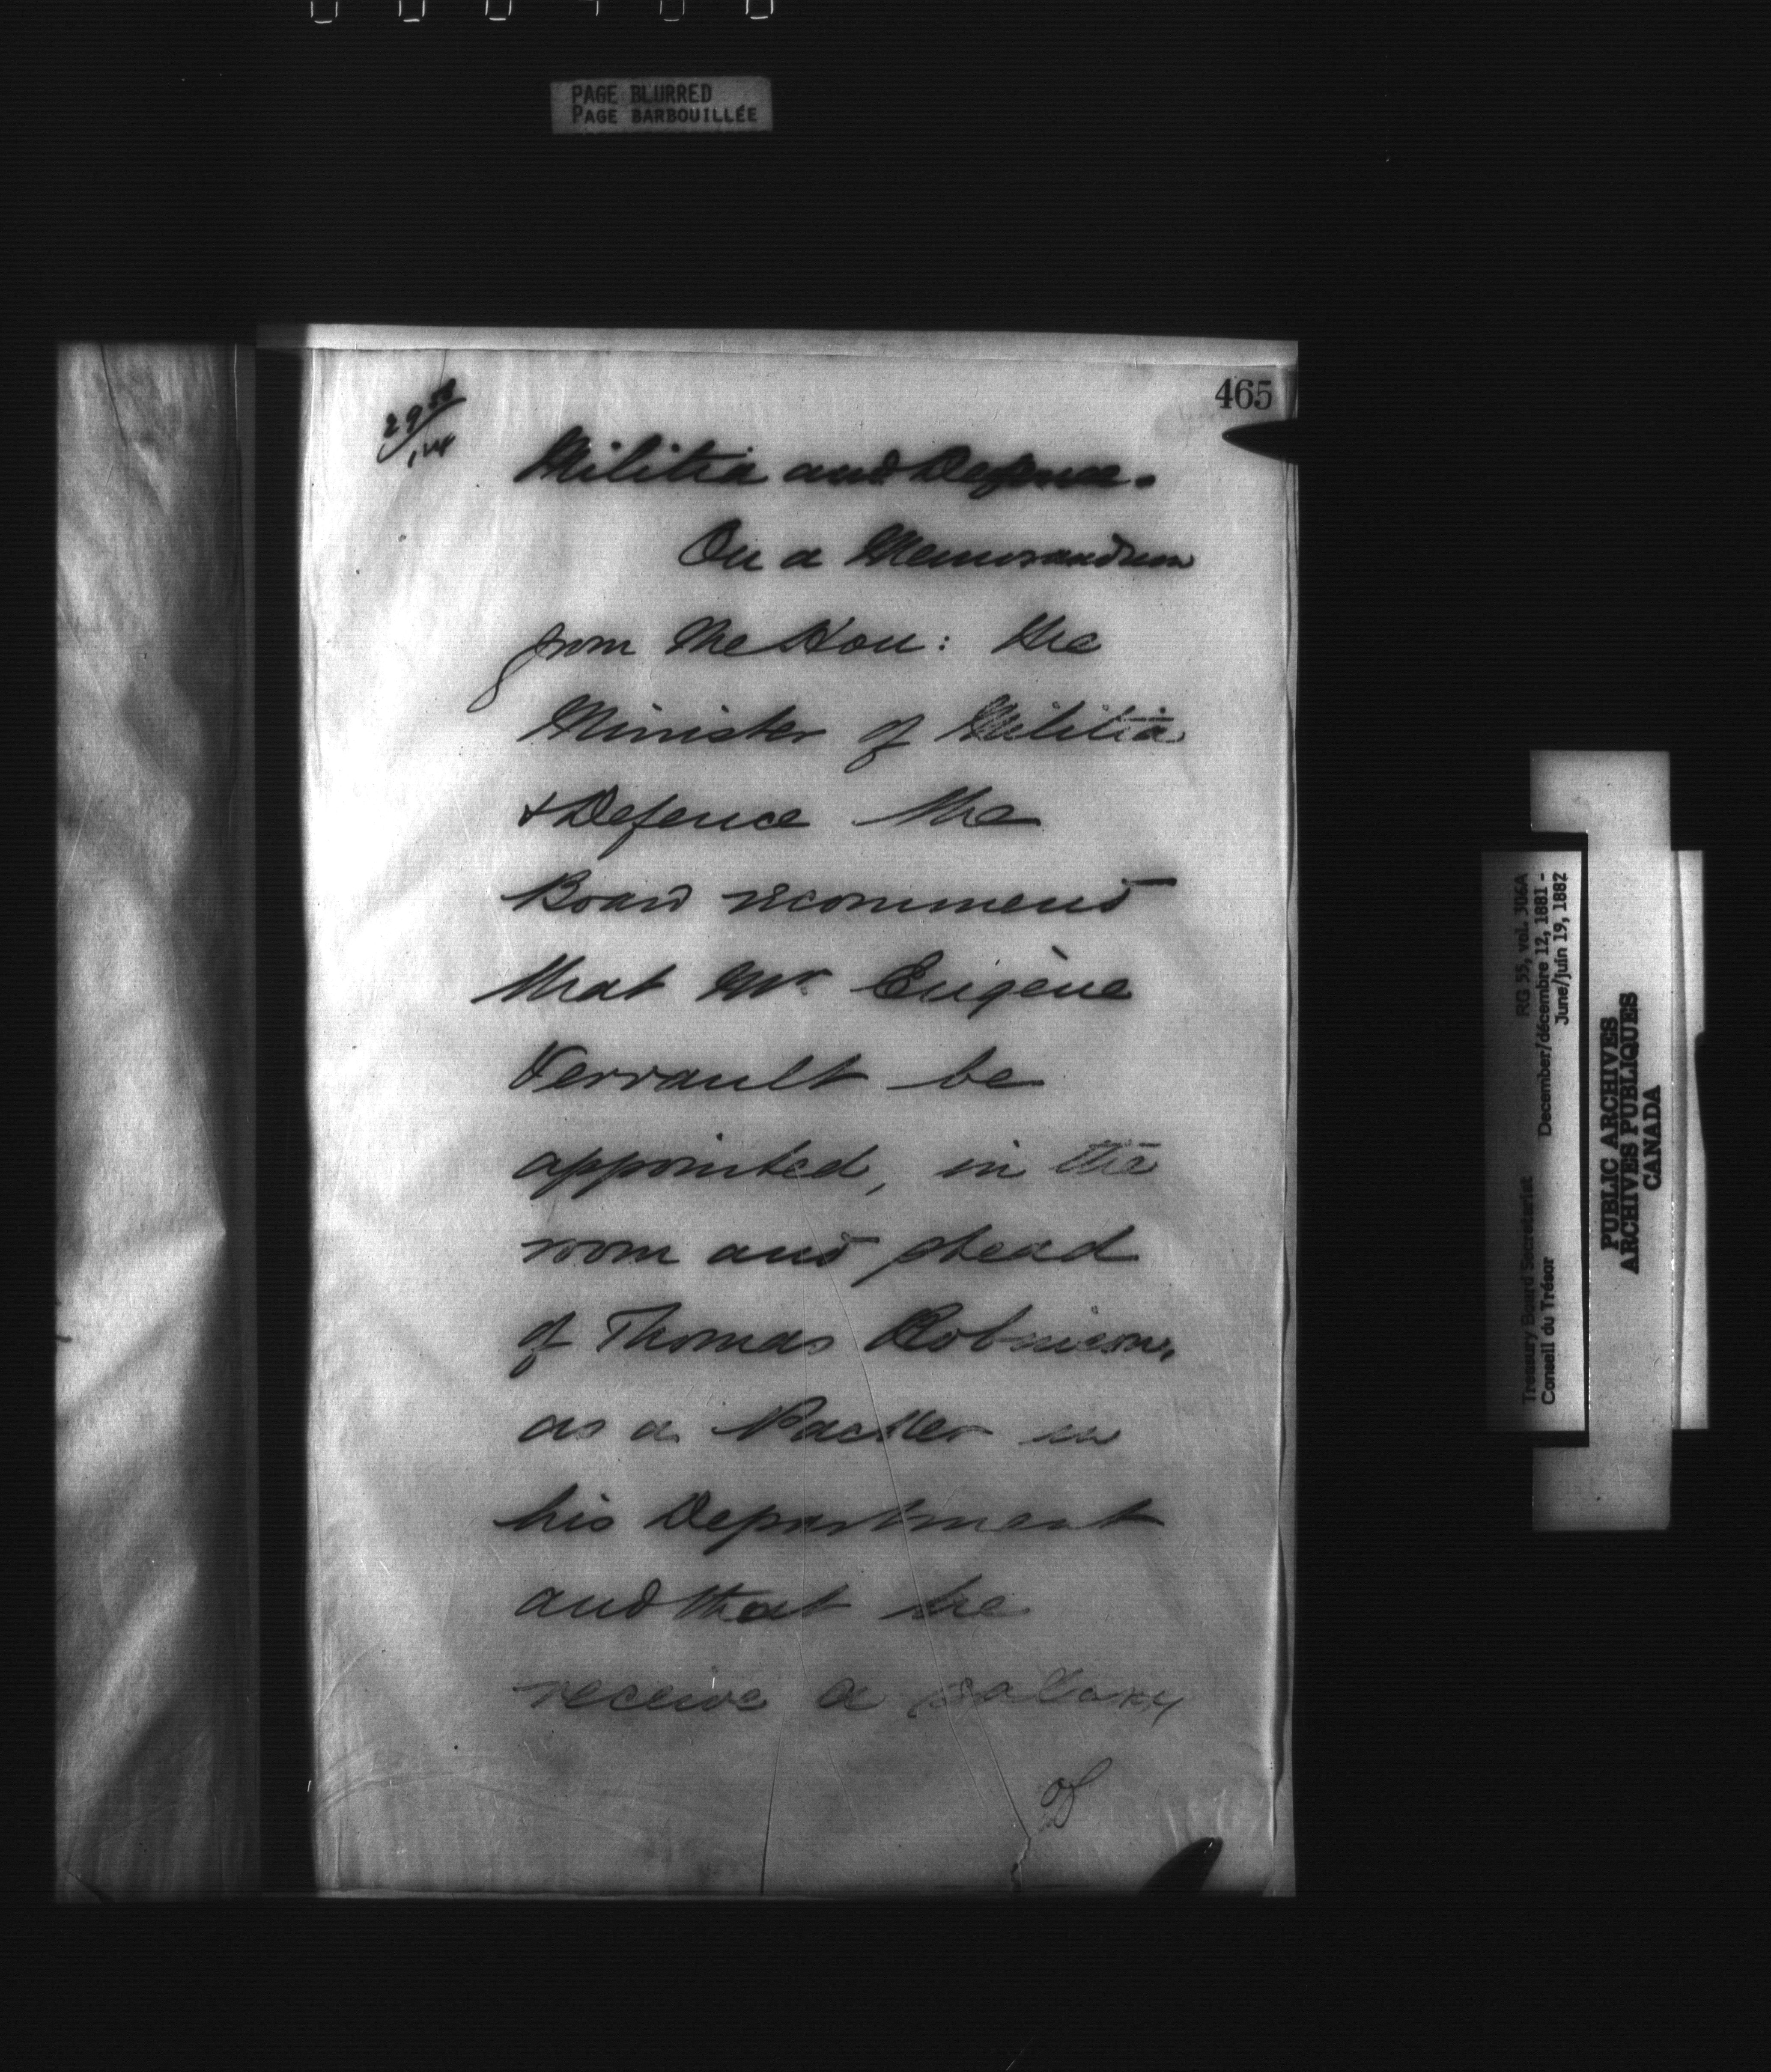 PAGE BLURRED
PAGE BARBOUILLÉE
465
Militia and Defence.
On a Memorandum
from the Hon: the
Minister of Militia
& Defence the
Board recommend
that Mr. Eugène
Verrault be
appointed, in the
room and stead
of Thomas Robinson,
as a Packer in
his Department
and that he
receive a salary
of
Treasury Board Secretariat RG 55, vol. 306A
Conseil du Trésor December/décembre 12, 1881 -
June/juin 19, 1882
PUBLIC ARCHIVES
ARCHIVES PUBLIQUES
CANADA